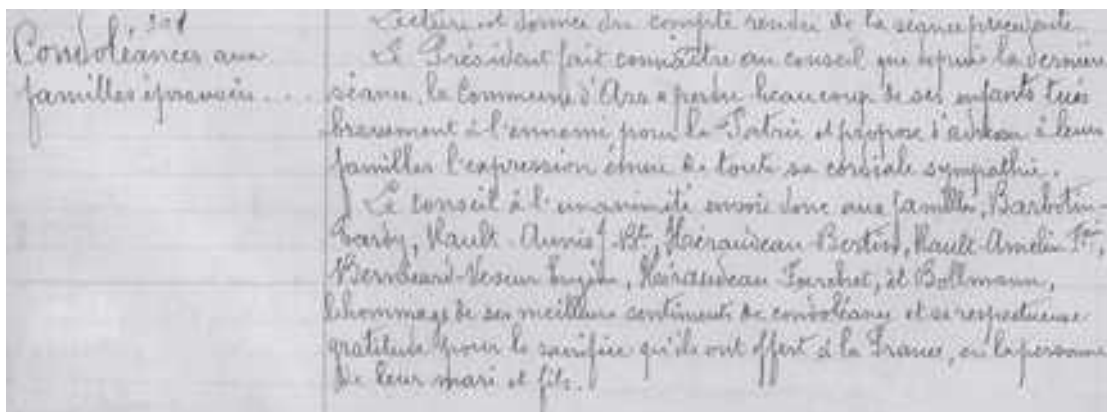 Condoléances aux
familles éprouvées....
Lecture est donnée du compte rendu de la séance précédente.
Le Président fait connaître au conseil que depuis la dernière
séance, la Commune d'Ars a perdu beaucoup de ses enfants tués
bravement à l'ennemi pour la Patrie et propose d'adresser à leurs
familles l'expression émue de toute sa cordiale sympathie.
Le conseil à l'unanimité envoie donc aux familles, Barbotin-
Rault-Aunis J-Bt, Héraudeau-Bertin, Rault-Amelin
Héraudeau et Bollmann,
l'hommage de ses meilleurs sentiments de condoléances et sa respectueuse
gratitude pour le sacrifice qu'ils ont offert à la France, en la personne
de leur mari et fils.